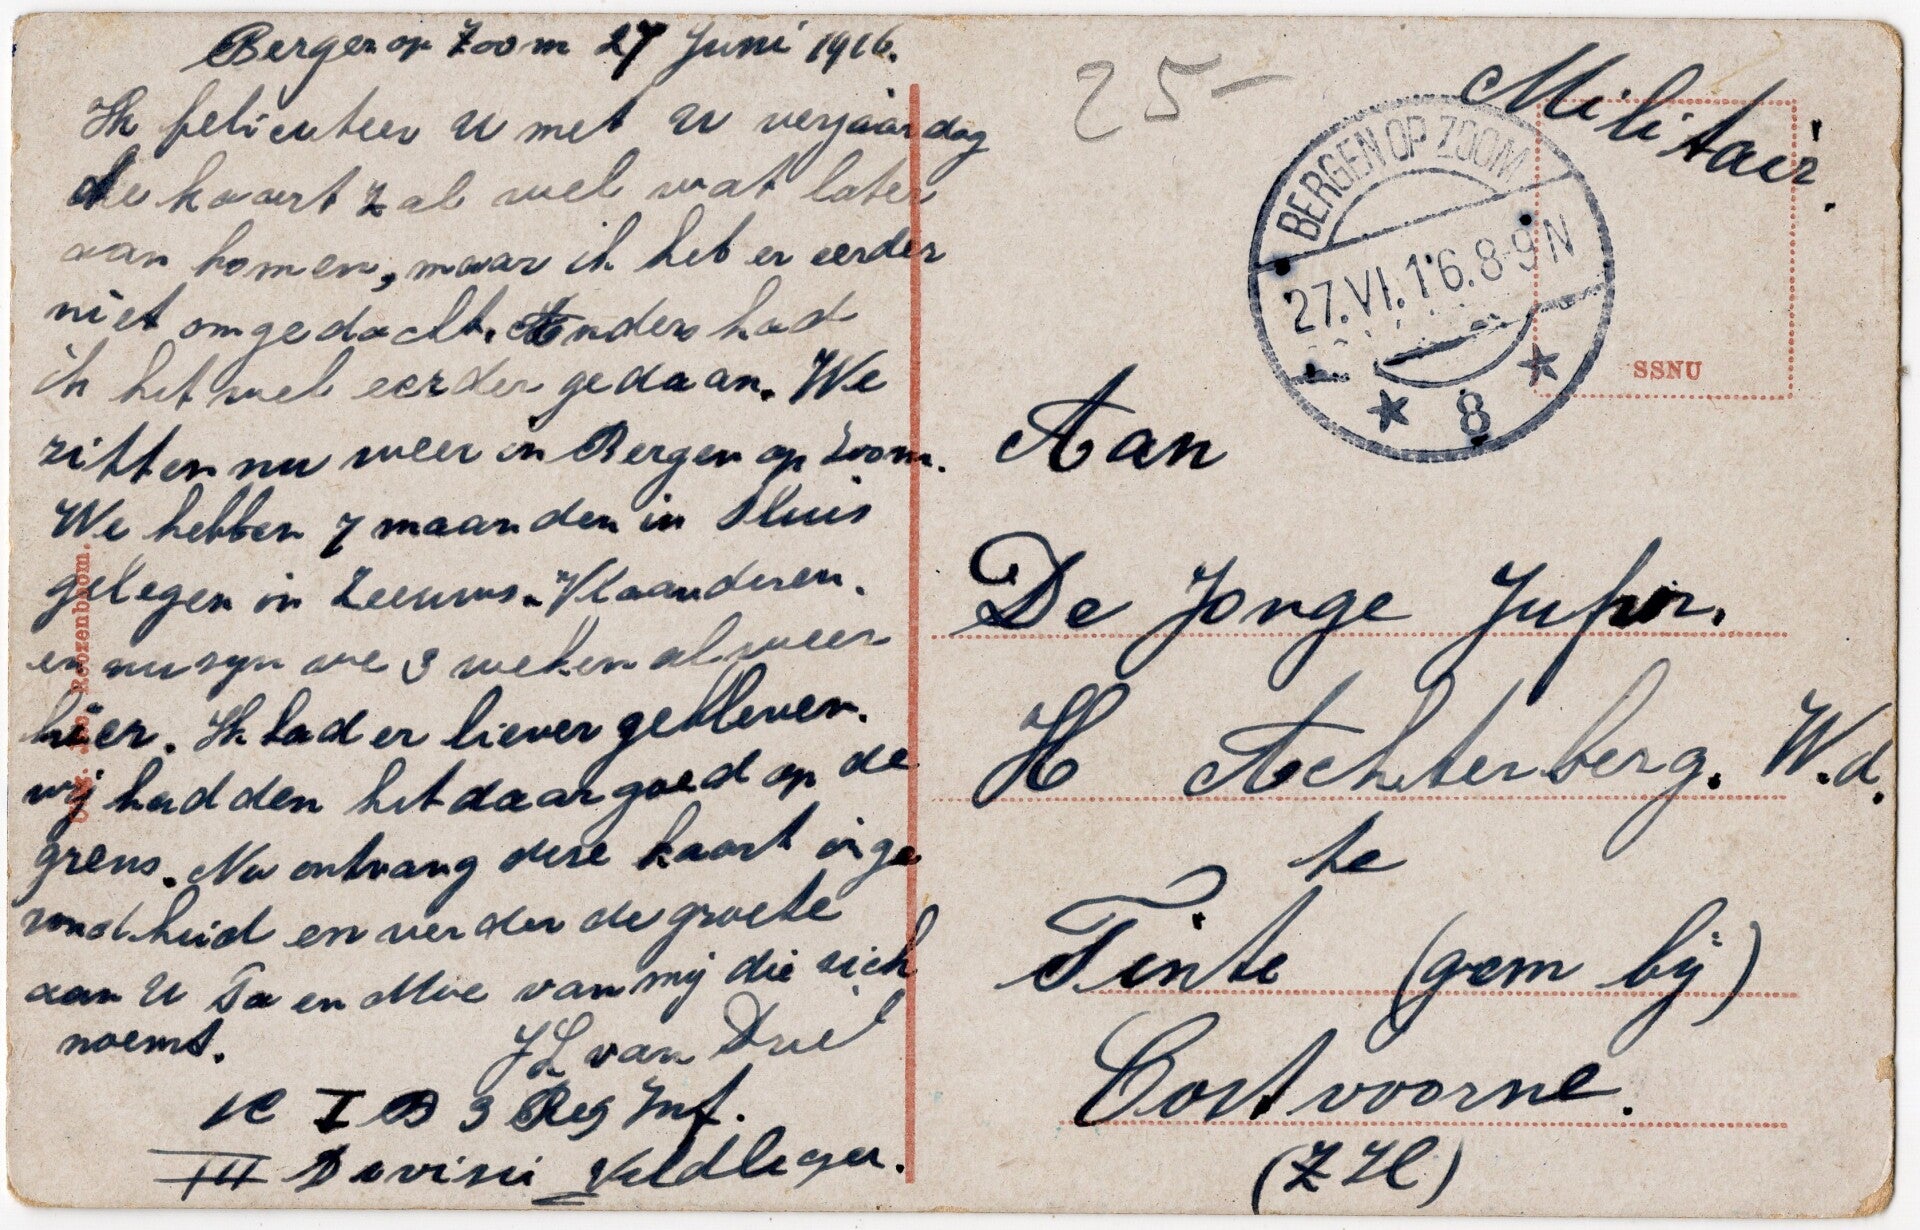 Bergen op Zoom 27 Juni 1916.
Ik feliciteer U met U verjaardag
de kaart zal wel wat later
aan komen, maar ik heb er eerder
niet omgedacht. Anders had
ik het wel eerder gedaan. We
zitten nu weer in Bergen op Zoom.
We hebben 7 maanden in Sluis
gelegen in Zeeuws-Vlaanderen.
en nu zyn we 3 weken al weer
hier. Ik had er liever gebleven.
wij hadden het daar goed op de
grens. Nu ontvang deze kaart in ge
zondheid en verder de groete
aan U Pa en Moe van mij die zich
noemt.
JL van Driel
1e I B 3 Reg Inf.
III Divisie Veldleger.
Roozenboom.
25-
Militair.
BERGEN OP ZOOM
27.VI.16.8-9N
8
SSNU
Aan
De Jonge Jufvr.
H Achterberg. W.d.
te
Tinte (gem bij)
Oostvoorne.
(ZH)